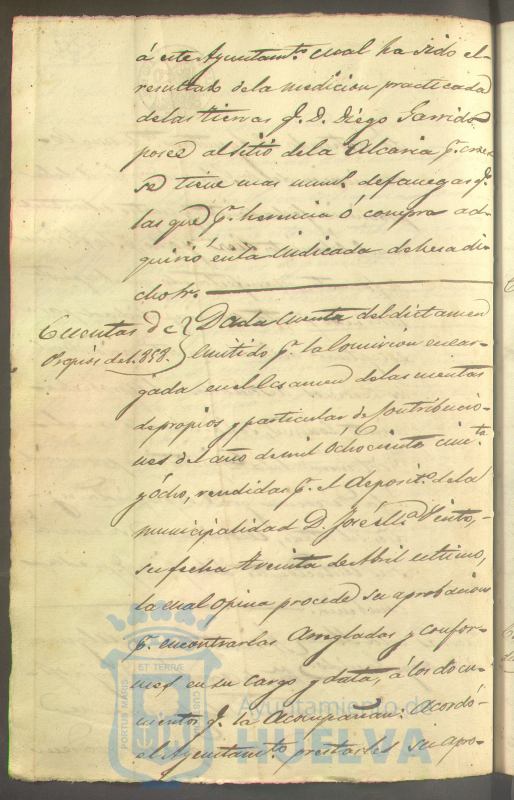 á este Ayuntamto. cual ha sido el
resultado de la medicion practicada
de las tierras q. D. Diego Garrido
posee al sitio de la Alcaria q.
se tiene mas numo. de fanegas q.
las que p. herencia ó compra ad-
quirió en la indicada dehesa di-
cho Sr.
Cuentas de
Propios del 1.858.
Dada cuenta del dictamen
emitido p. la Comision encar-
gada en el Ecsamen de las cuentas
de propios y particular de Contribucio-
nes del año de mil ochocientos cincta.
y ócho, rendidas p. el Deposito. de la
municipalidad D. José Ma. Pinto,
su fecha treinta de Abril ultimo,
la cual opina procede su aprobacion
p. encontrarlas Arregladas y confor-
mes en su cargo y data, á los docu-
mentos q. la Acompañan: Acordó
el Ayuntamto. prestarles su apro-
PORTUS MARIS
ET TERRÆ
CUSTODIA
Ayuntamiento de
HUELVA